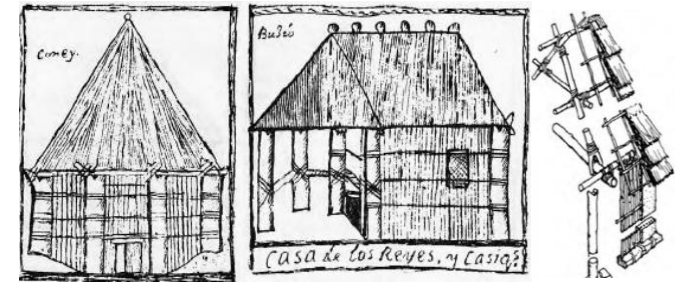 Caney.
Buhío
CASA de los Reyes, y Casiq.s